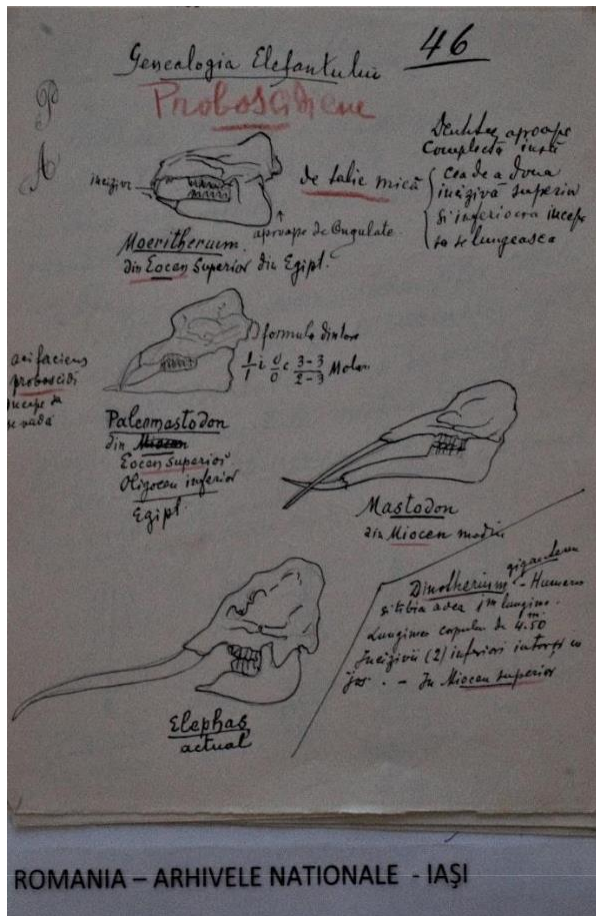 46
Genealogia Elefantului
Proboscidiene
P
A
Dentiția aproape
Complectă însă
cea de a doua
incizivă superior
și inferioara începe
să se lungească
incizivi
de talie mică
aproape de Ongulate
Moeritherium
din Eocen Superior din Egipt.
formula dintară
1/1 i 0/0 c 3-3/2-3 Molari
proboscidi
începe să
se vadă
Paleomastodon
din Miocen
Eocen superior
Oligocen inferior
Egipt
Mastodon
din Miocen mediu
giganteum
Dinotherium - Humerus
și tibia avea 1m lungime.
Lungimea corpului de 4.50 m.
Incizivii (2) inferiori întorși în
jos. - În Miocen superior
Elephas
actual
ROMANIA – ARHIVELE NATIONALE - IAȘI